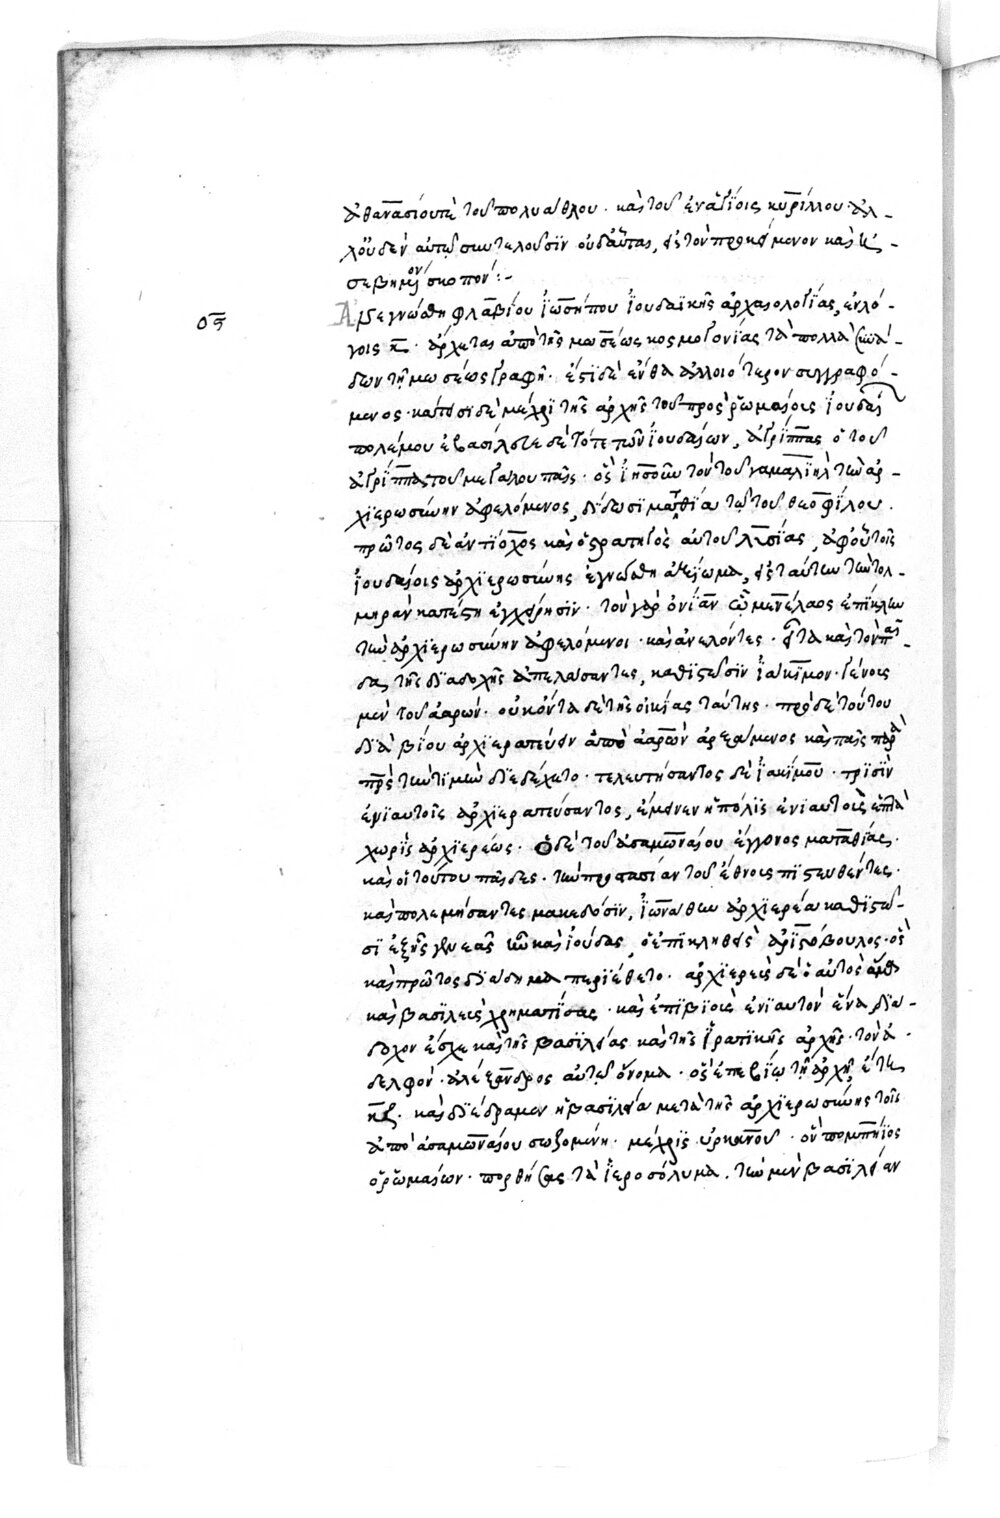 ἀθανασίου τὲ τοῦ πολυάθλου· καὶ τοῦ ἐναγίοις κυρίλλου· ἀλ-
λ' οὐδὲν αὐτῷ συντελοῦσιν οὐδ' αὗται, εἰς τὸν προκείμενον καὶ
σεβημονι σκοπόν:-
ος
Ἀνεγνώσθη φλαβίου ἰωσήπου ἰουδαϊκῆς ἀρχαιολογίας, ἐν λό-
γοις κ· ἄρχεται ἀπὸ τῆς μωσέως κοσμογονίας τὰ πολλὰ συνά-
δων τῇ μωσέως γραφῇ· ἔστι δὲ ἔνθα ἀλλοιότερον συγγραφό-
μενος· κάτεισι δὲ μέχρι τῆς ἀρχῆς τοῦ πρὸς ῥωμαίοις ἰουδαι
πολέμου ἐβασίλευε δὲ τότε τῶν ἰουδαίων, ἀγρίππας ὁ τοῦ
ἀγρίππας τοῦ μεγάλου παῖς· ὃς ἰησοῦν τὸν τοῦ γαμαλιὴλ τὴν ἀρ-
χιερωσύνην ἀφελόμενος, δίδωσι ματθία τῷ τοῦ θεοφίλου.
πρῶτος δὲ ἀντίοχος καὶ ὁ στρατηγὸς αὐτοῦ λυσίας, ἀφ' οὗ τοῖς
ἰουδαίοις ἀρχιερωσύνης ἐγνώσθη ἀξίωμα, εἰς ταύτην τὴν τολ-
μηρὰν κατέστη ἐγχείρησιν· τὸν γὰρ ὀνίαν ᾧ μενέλαος ἐπίκλην
τὴν ἀρχιερωσύνην ἀφελόμενοι· καὶ ἀνελόντες· εἶτα καὶ τὸν παῖ-
δα, τῆς διαδοχῆς ἀπελάσαντες, καθιστῶσιν ἰάκιμον· γένοις
μὲν τοῦ ἀαρών· οὐκ ὄντα δὲ τῆς οἰκίας ταύτης· πρὸ δὲ τούτου
διὰ βίου ἀρχιεράτευεν ἀπὸ ἀαρὼν ἀρξάμενος καὶ παῖς παρὰ
πρς τὴν τιμὴν διεδέχετο· τελευτήσαντος δὲ ἰακίμου· τρισὶν
ἐνιαυτοῖς ἀρχιερατεύσαντος, ἔμεινεν ἡ πόλις ἐνιαυτοῖς ἑπτὰ
χωρὶς ἀρχιερέως· ὁ δὲ τοῦ ἀσαμωναίου ἔγγονος ματαθίας·
καὶ οἱ τούτου παῖδες· τὴν προστασίαν τοῦ ἔθνοις πιστευθέντες·
καὶ πολεμήσαντες μακεδόσιν, ἰωνάθην ἀρχιερέα καθιστῶ-
σι ἑξῆς γενεᾶς καὶ ἰούδας, ὁ ἐπικληθεὶς ἀριστόβουλος· ὃς
καὶ πρῶτος διάδημα περιέθετο· ἀρχιερεὺς δὲ ὁ αὐτὸς ἅμα
καὶ βασιλεὺς χρηματίσας· καὶ ἐπιβιοὺς ἐνιαυτὸν ἕνα διά-
δοχον ἔσχε καὶ τῆς βασιλείας καὶ τῆς ἱερατικῆς ἀρχῆς· τὸν ἀ-
δελφόν· ἀλέξανδρος αὐτῷ ὄνομα· ὃς ἐπεβίω τῇ ἀρχῇ ἔτη
κζ· καὶ διέδραμεν ἡ βασιλεία μετὰ τῆς ἀρχιερωσύνης τοῖς
ἀπὸ ἀσαμωναίου σωζομένη· μέχρις ὑρκανοῦ· ὃν πομπήιος
ὁ ῥωμαίων· πορθήσας τὰ ἱεροσόλυμα, τὴν μὲν βασιλείαν